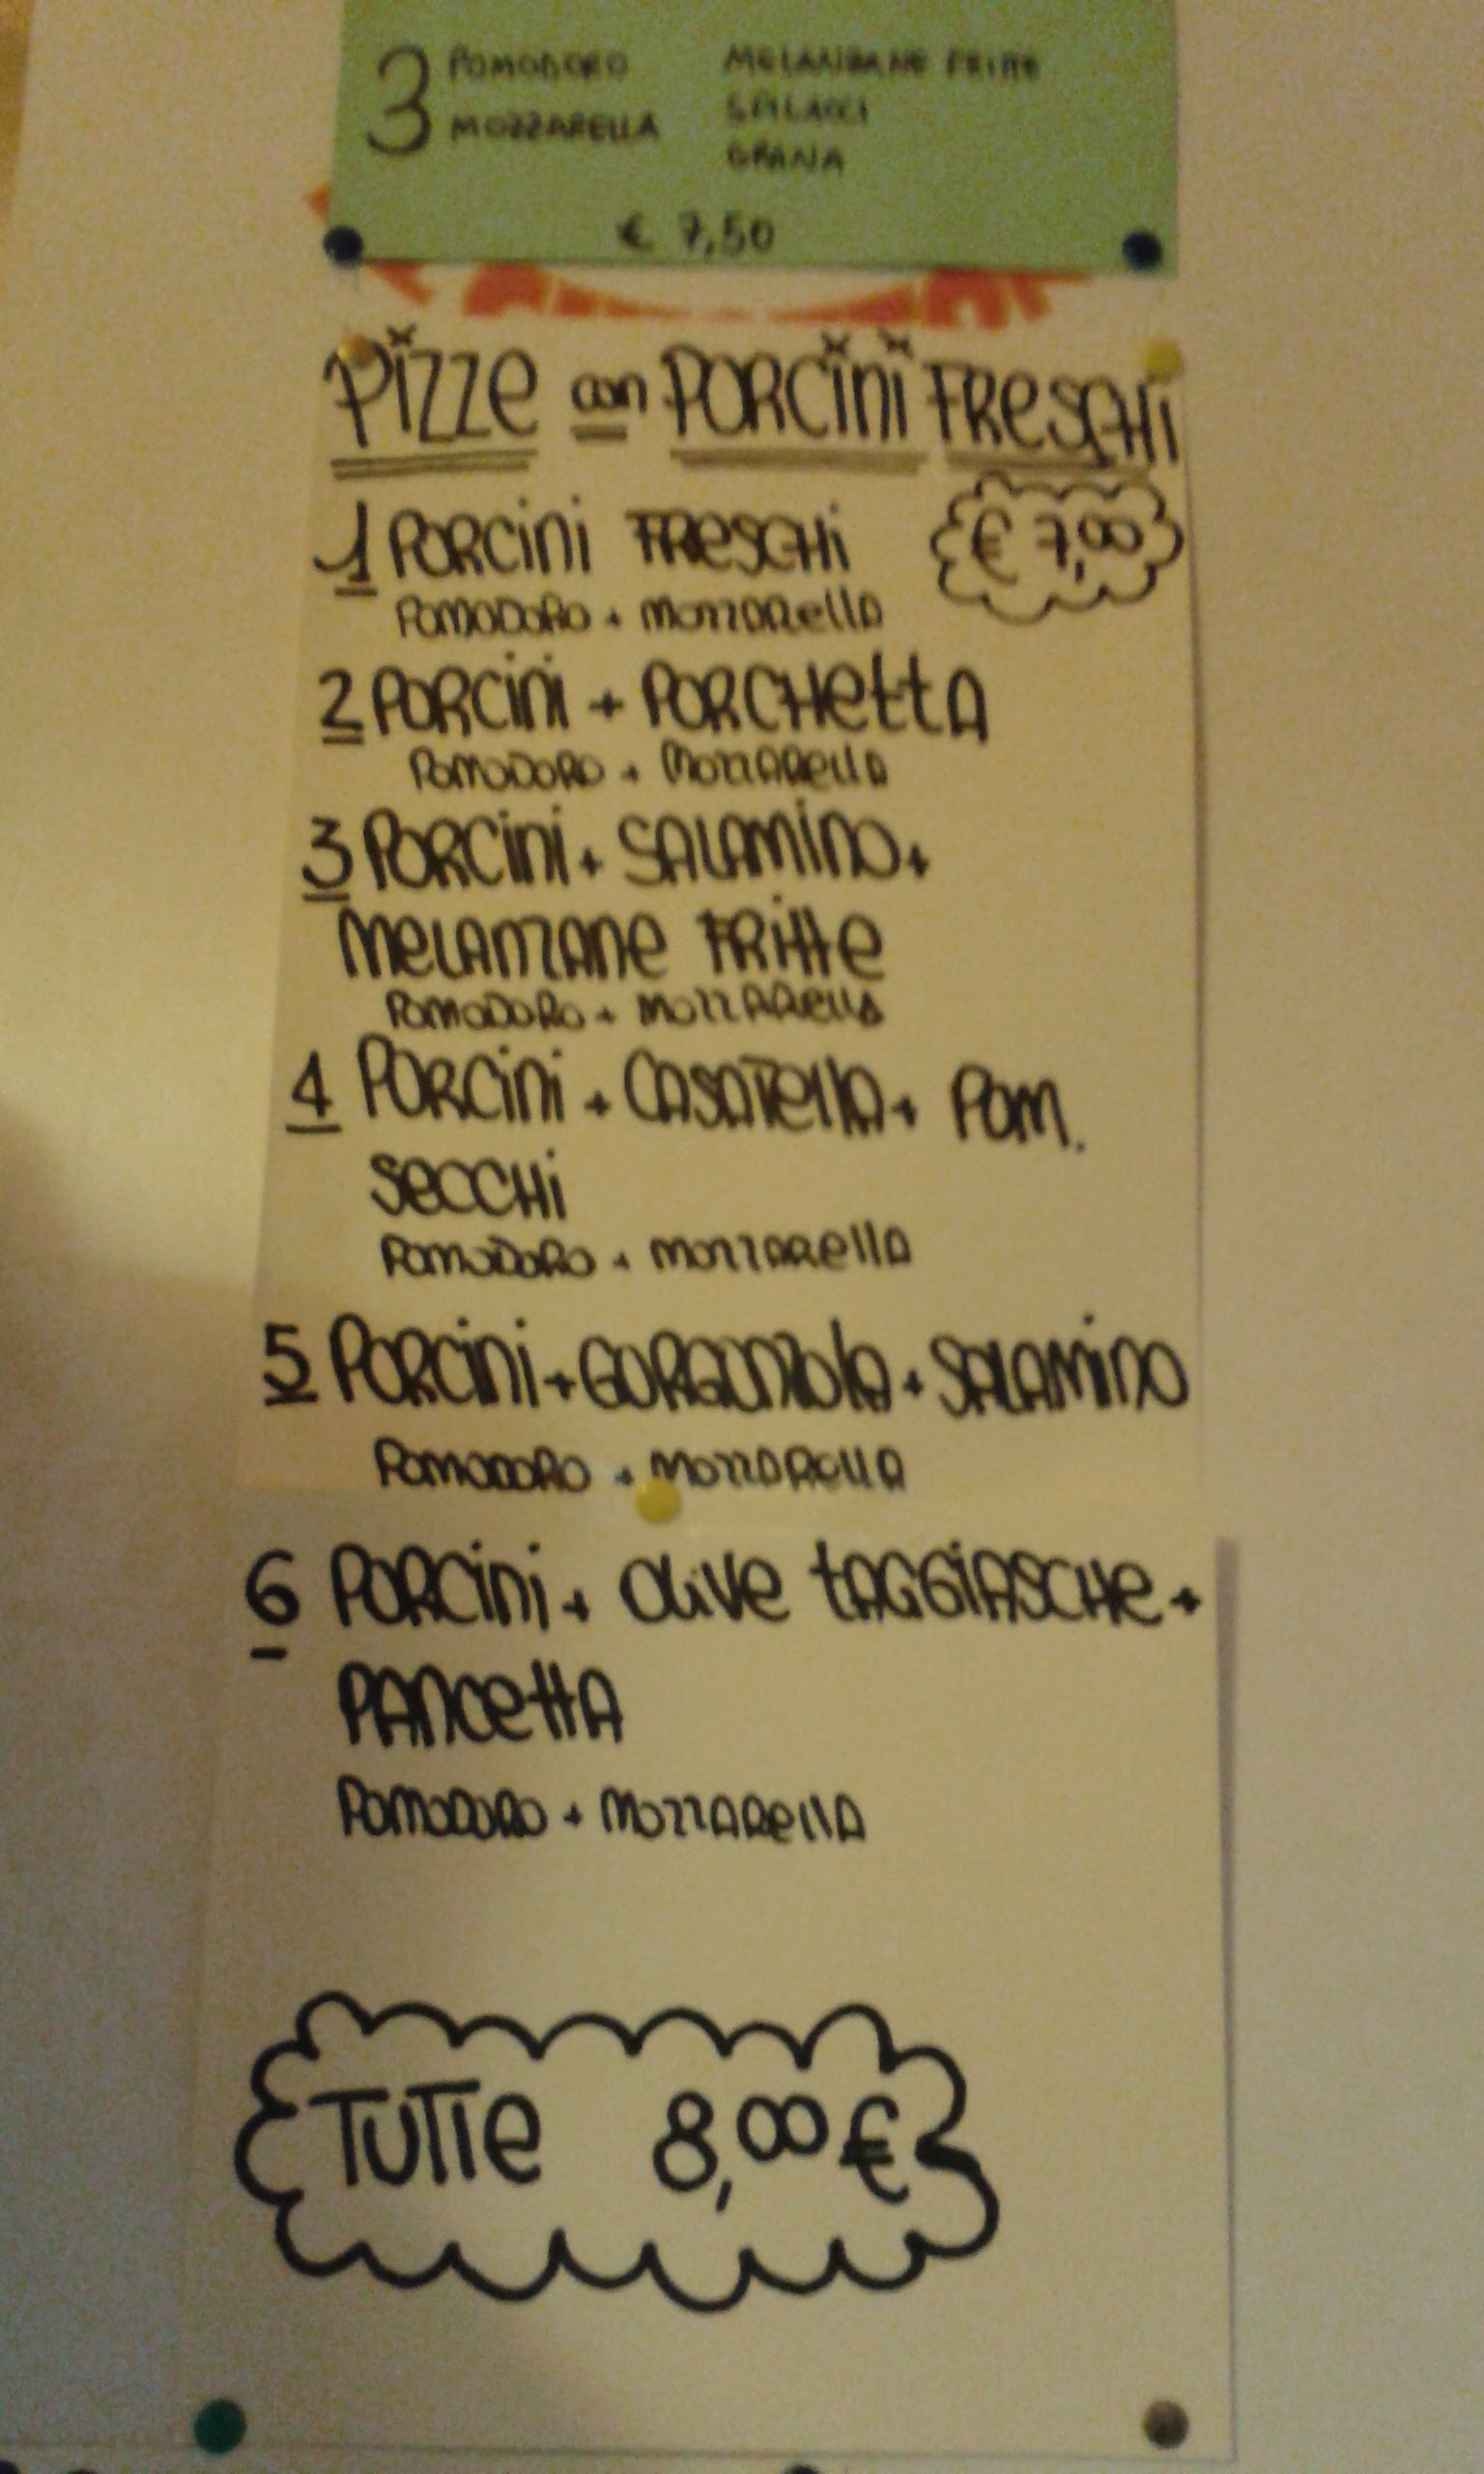 3 POMODORO MELANZANE FRITTE
MOZZARELLA
GRANA
€ 7,50
PIZZE con PORCINI FRESCHI
1 PORCINI FRESCHI € 7,00
POMODORO + MOZZARELLA
2 PORCINI + PORCHETTA
POMODORO + MOZZARELLA
3 PORCINI + SALAMINO +
MELANZANE FRITTE
POMODORO + MOZZARELLA
4 PORCINI + CASATELLA + POM.
SECCHI
POMODORO + MOZZARELLA
5 PORCINI + GORGONZOLA + SALAMINO
POMODORO + MOZZARELLA
6 PORCINI + OLIVE TAGGIASCHE +
PANCETTA
POMODORO + MOZZARELLA
TUTTE 8,00 €